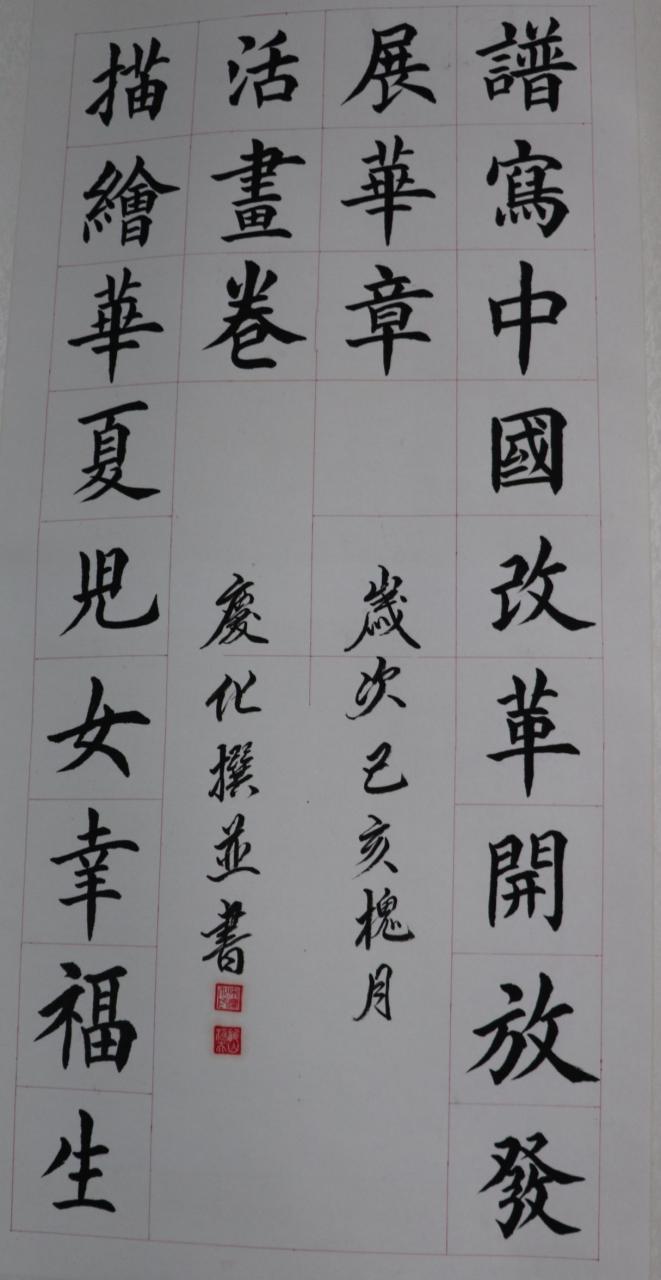 譜寫中國改革開放發
展華章
歲次己亥槐月
描繪華夏兒女幸福生
活畫卷
慶化撰並書